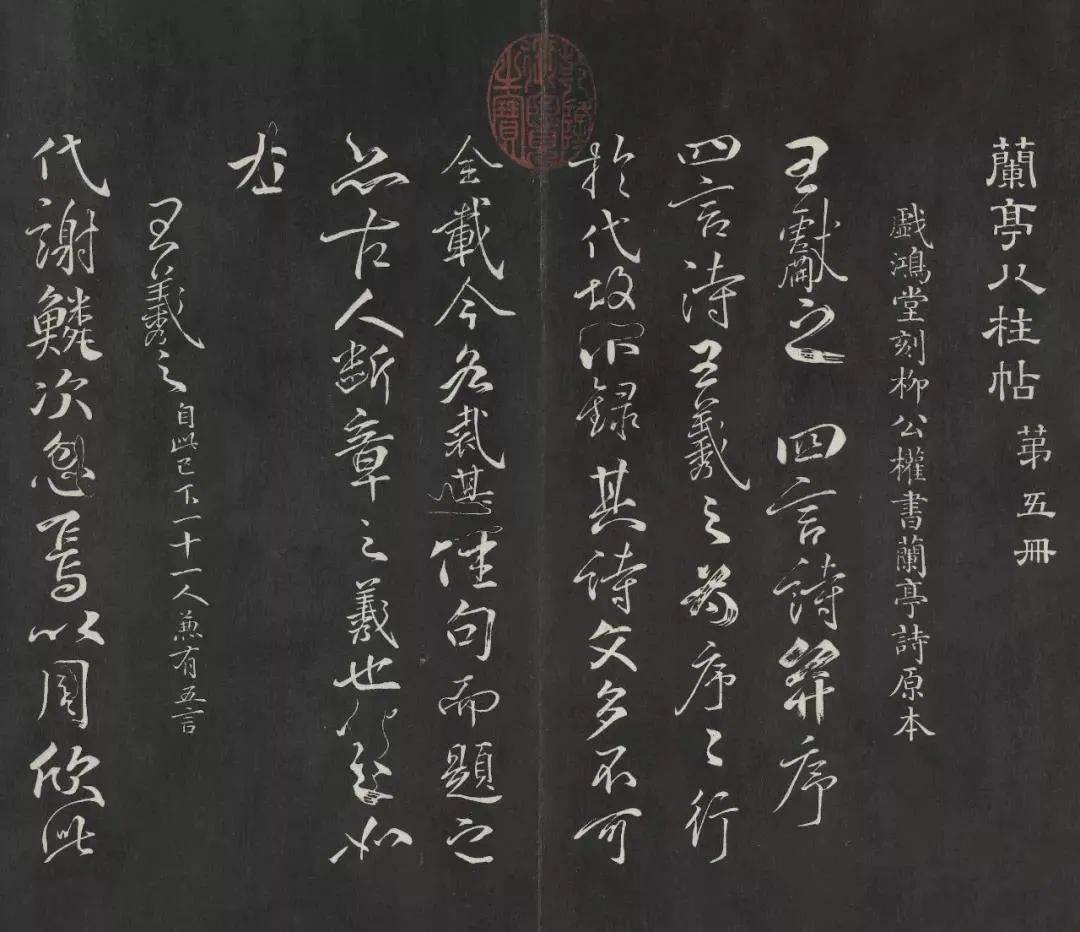 乾隆御覽之寶
蘭亭八柱帖 第五冊
戲鴻堂刻柳公權書蘭亭詩原本
王獻之 四言詩并序
四言詩王羲之為序〻行
於代故不錄其詩文多不可
全載今各裁其佳句而題之
亦古人斷章之義也 如
左
王羲之 自此已下一十一人兼有五言
代謝鱗次忽焉以周欣此